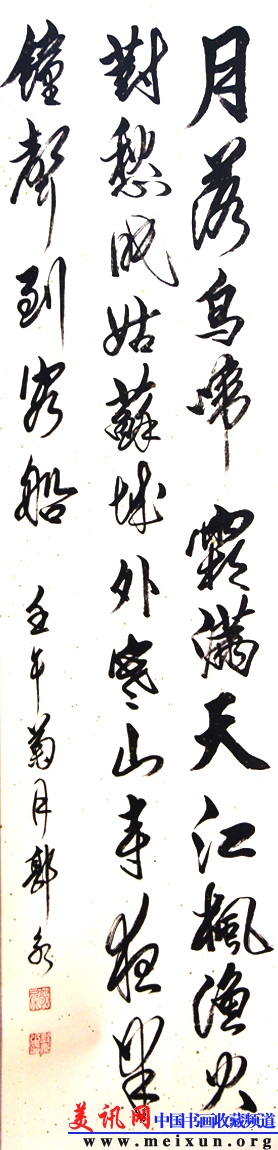 月落烏啼霜滿天江楓漁火
對愁眠姑蘇城外寒山寺夜半
鐘聲到客船
壬午菊月
美讯网 中国书画收藏频道
www.meixun.org